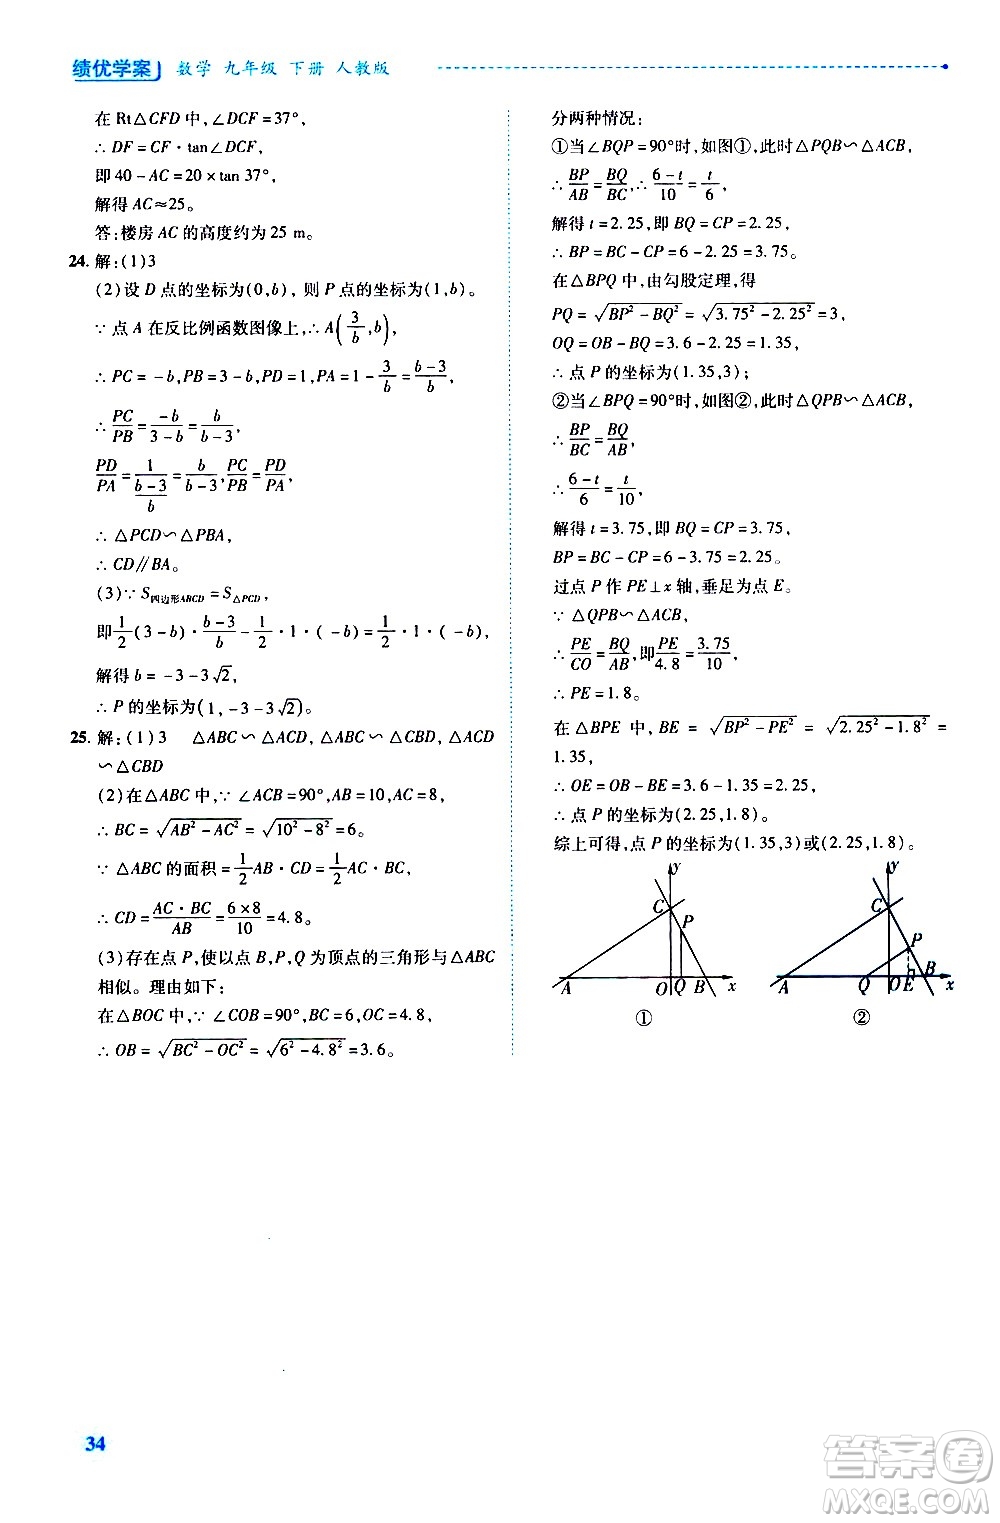 绩优学案 数学 九年级 下册 人教版
在 Rt△CFD 中,∠DCF=37°,
∴ DF=CF·tan∠DCF,
即 40-AC=20×tan 37°,
解得 AC≈25。
答:楼房 AC 的高度约为 25 m。
24. 解:(1)3
(2)设 D 点的坐标为(0,b), 则 P 点的坐标为(1,b)。
∵ 点 A 在反比例函数图像上,∴ A(3/b,b),
∴ PC=-b,PB=3-b,PD=1,PA=1-3/b=(b-3)/b,
∴ PC/PB=-b/(3-b)=b/(b-3),
PD/PA=1/((b-3)/b)=b/(b-3),PC/PB=PD/PA,
∴ △PCD∽△PBA,
∴ CD∥BA。
(3)∵ S四边形ABCD=S△PCD,
即 1/2(3-b)·(b-3)/b-1/2·1·(-b)=1/2·1·(-b),
解得 b=-3-3√2,
∴ P 的坐标为(1,-3-3√2)。
25. 解:(1)3 △ABC∽△ACD,△ABC∽△CBD,△ACD
∽△CBD
(2)在△ABC 中,∵ ∠ACB=90°,AB=10,AC=8,
∴ BC=√(AB²-AC²)=√(10²-8²)=6。
∵ △ABC 的面积=1/2AB·CD=1/2AC·BC,
∴ CD=AC·BC/AB=6×8/10=4.8。
(3)存在点 P,使以点 B,P,Q 为顶点的三角形与△ABC
相似。理由如下:
在△BOC 中,∵ ∠COB=90°,BC=6,OC=4.8,
∴ OB=√(BC²-OC²)=√(6²-4.8²)=3.6。
分两种情况:
①当∠BQP=90°时,如图①,此时△PQB∽△ACB,
∴ BP/AB=BQ/BC,∴ (6-t)/10=t/6,
解得 t=2.25,即 BQ=CP=2.25,
∴ BP=BC-CP=6-2.25=3.75。
在△BPQ 中,由勾股定理,得
PQ=√(BP²-BQ²)=√(3.75²-2.25²)=3,
OQ=OB-BQ=3.6-2.25=1.35,
∴ 点 P 的坐标为(1.35,3);
②当∠BPQ=90°时,如图②,此时△QPB∽△ACB,
∴ BP/BC=BQ/AB,
∴ (6-t)/6=t/10,
解得 t=3.75,即 BQ=CP=3.75,
BP=BC-CP=6-3.75=2.25。
过点 P 作 PE⊥x 轴,垂足为点 E。
∵ △QPB∽△ACB,
∴ PE/CO=BQ/AB,即PE/4.8=3.75/10,
∴ PE=1.8。
在 △BPE 中,BE=√(BP²-PE²)=√(2.25²-1.8²)=
1.35,
∴ OE=OB-BE=3.6-1.35=2.25,
∴ 点 P 的坐标为(2.25,1.8)。
综上可得,点 P 的坐标为(1.35,3)或(2.25,1.8)。
y C P A O Q B x
①
y C P A Q O E B x
②
34
答案圈
MXQE.COM